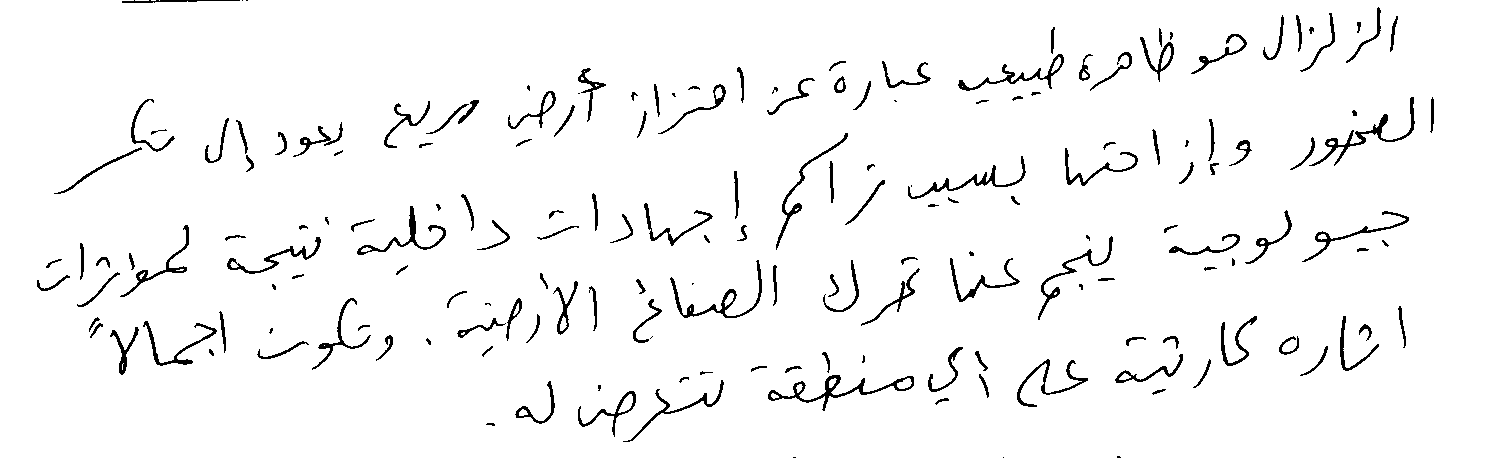 الزلزال هو ظاهرة طبيعية عبارة عن اهتزاز أرضي سريع يعود إلى تكسر
الصخور وإزاحتها بسبب تراكم إجهادات داخلية نتيجة لمؤثرات
جيولوجية ينجم عنها تحرك الصفائح الأرضية. وتكون اجمالاً
اثاره كارثية على أي منطقة تتعرض له.